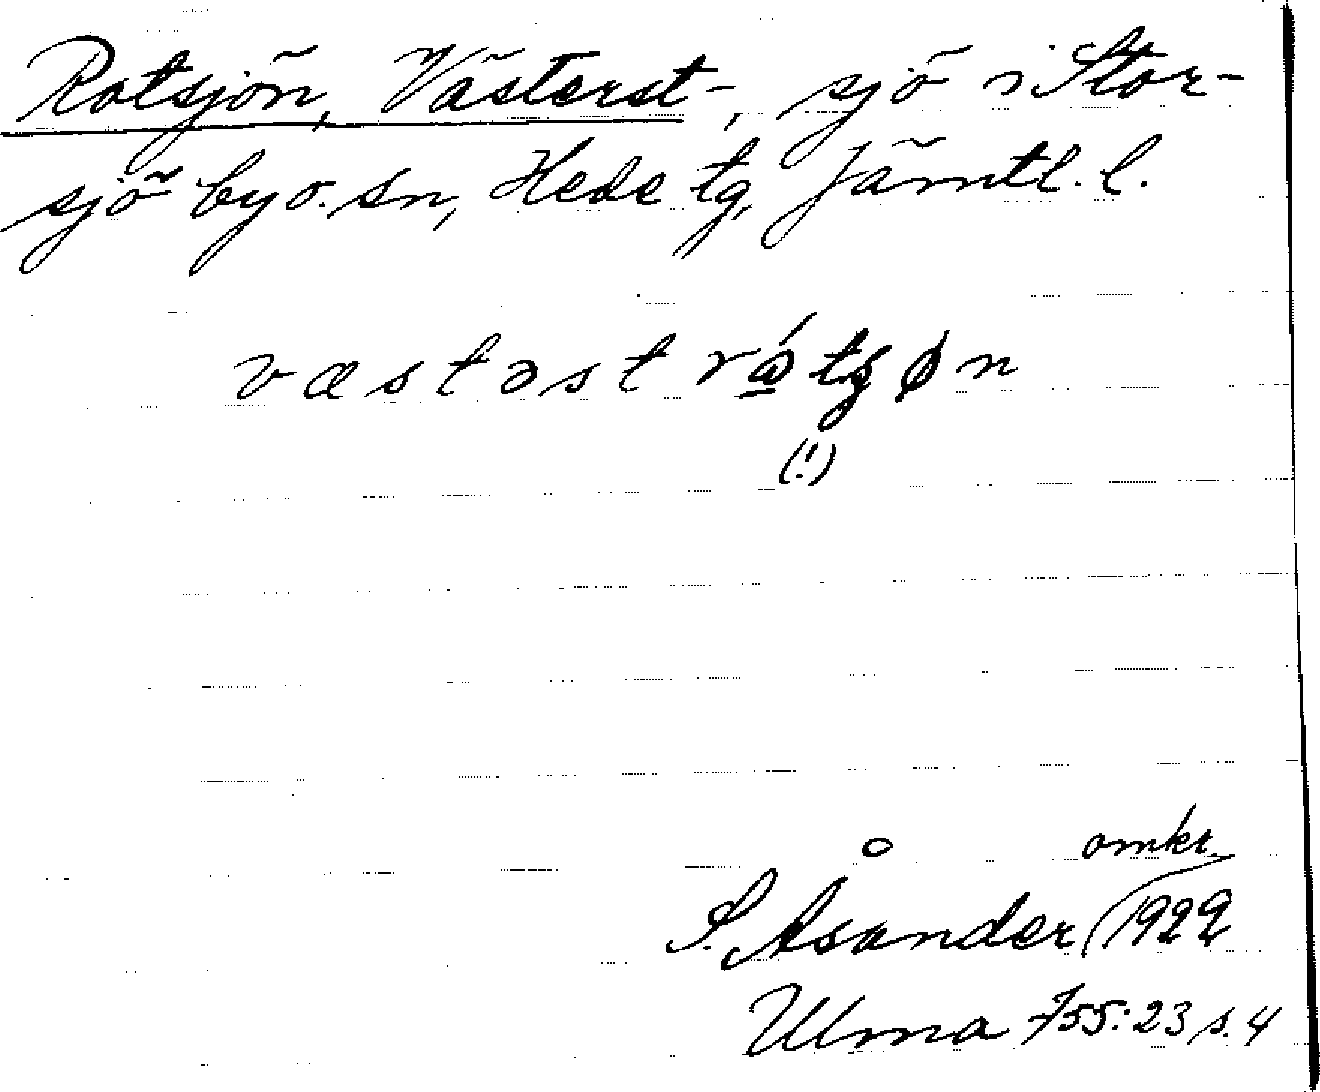 Rotsjön, Västerst-, sjö i Stor-
sjö by o. sn, Hede tg, Jämtl. l.
væstəst
(!)
omkr.
S. Åsander 1922
Ulma 755:23 s. 4